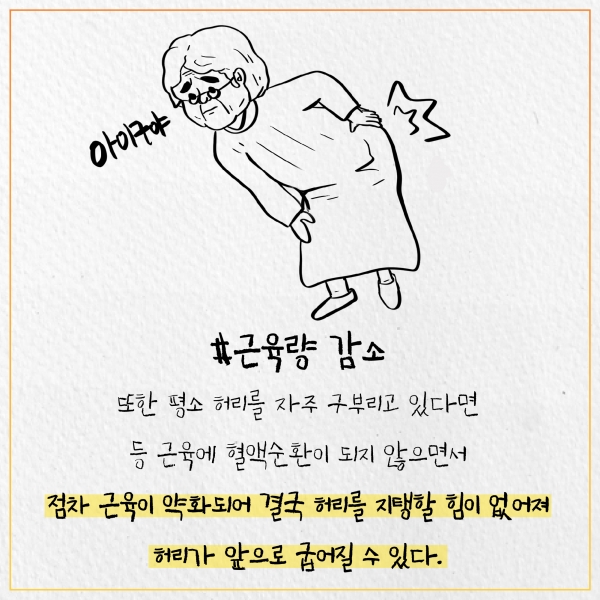 아이구야
#근육량 감소
또한 평소 허리를 자주 구부리고 있다면
등 근육에 혈액순환이 되지 않으면서
점차 근육이 약화되어 결국 허리를 지탱할 힘이 없어져
허리가 앞으로 굽어질 수 있다.